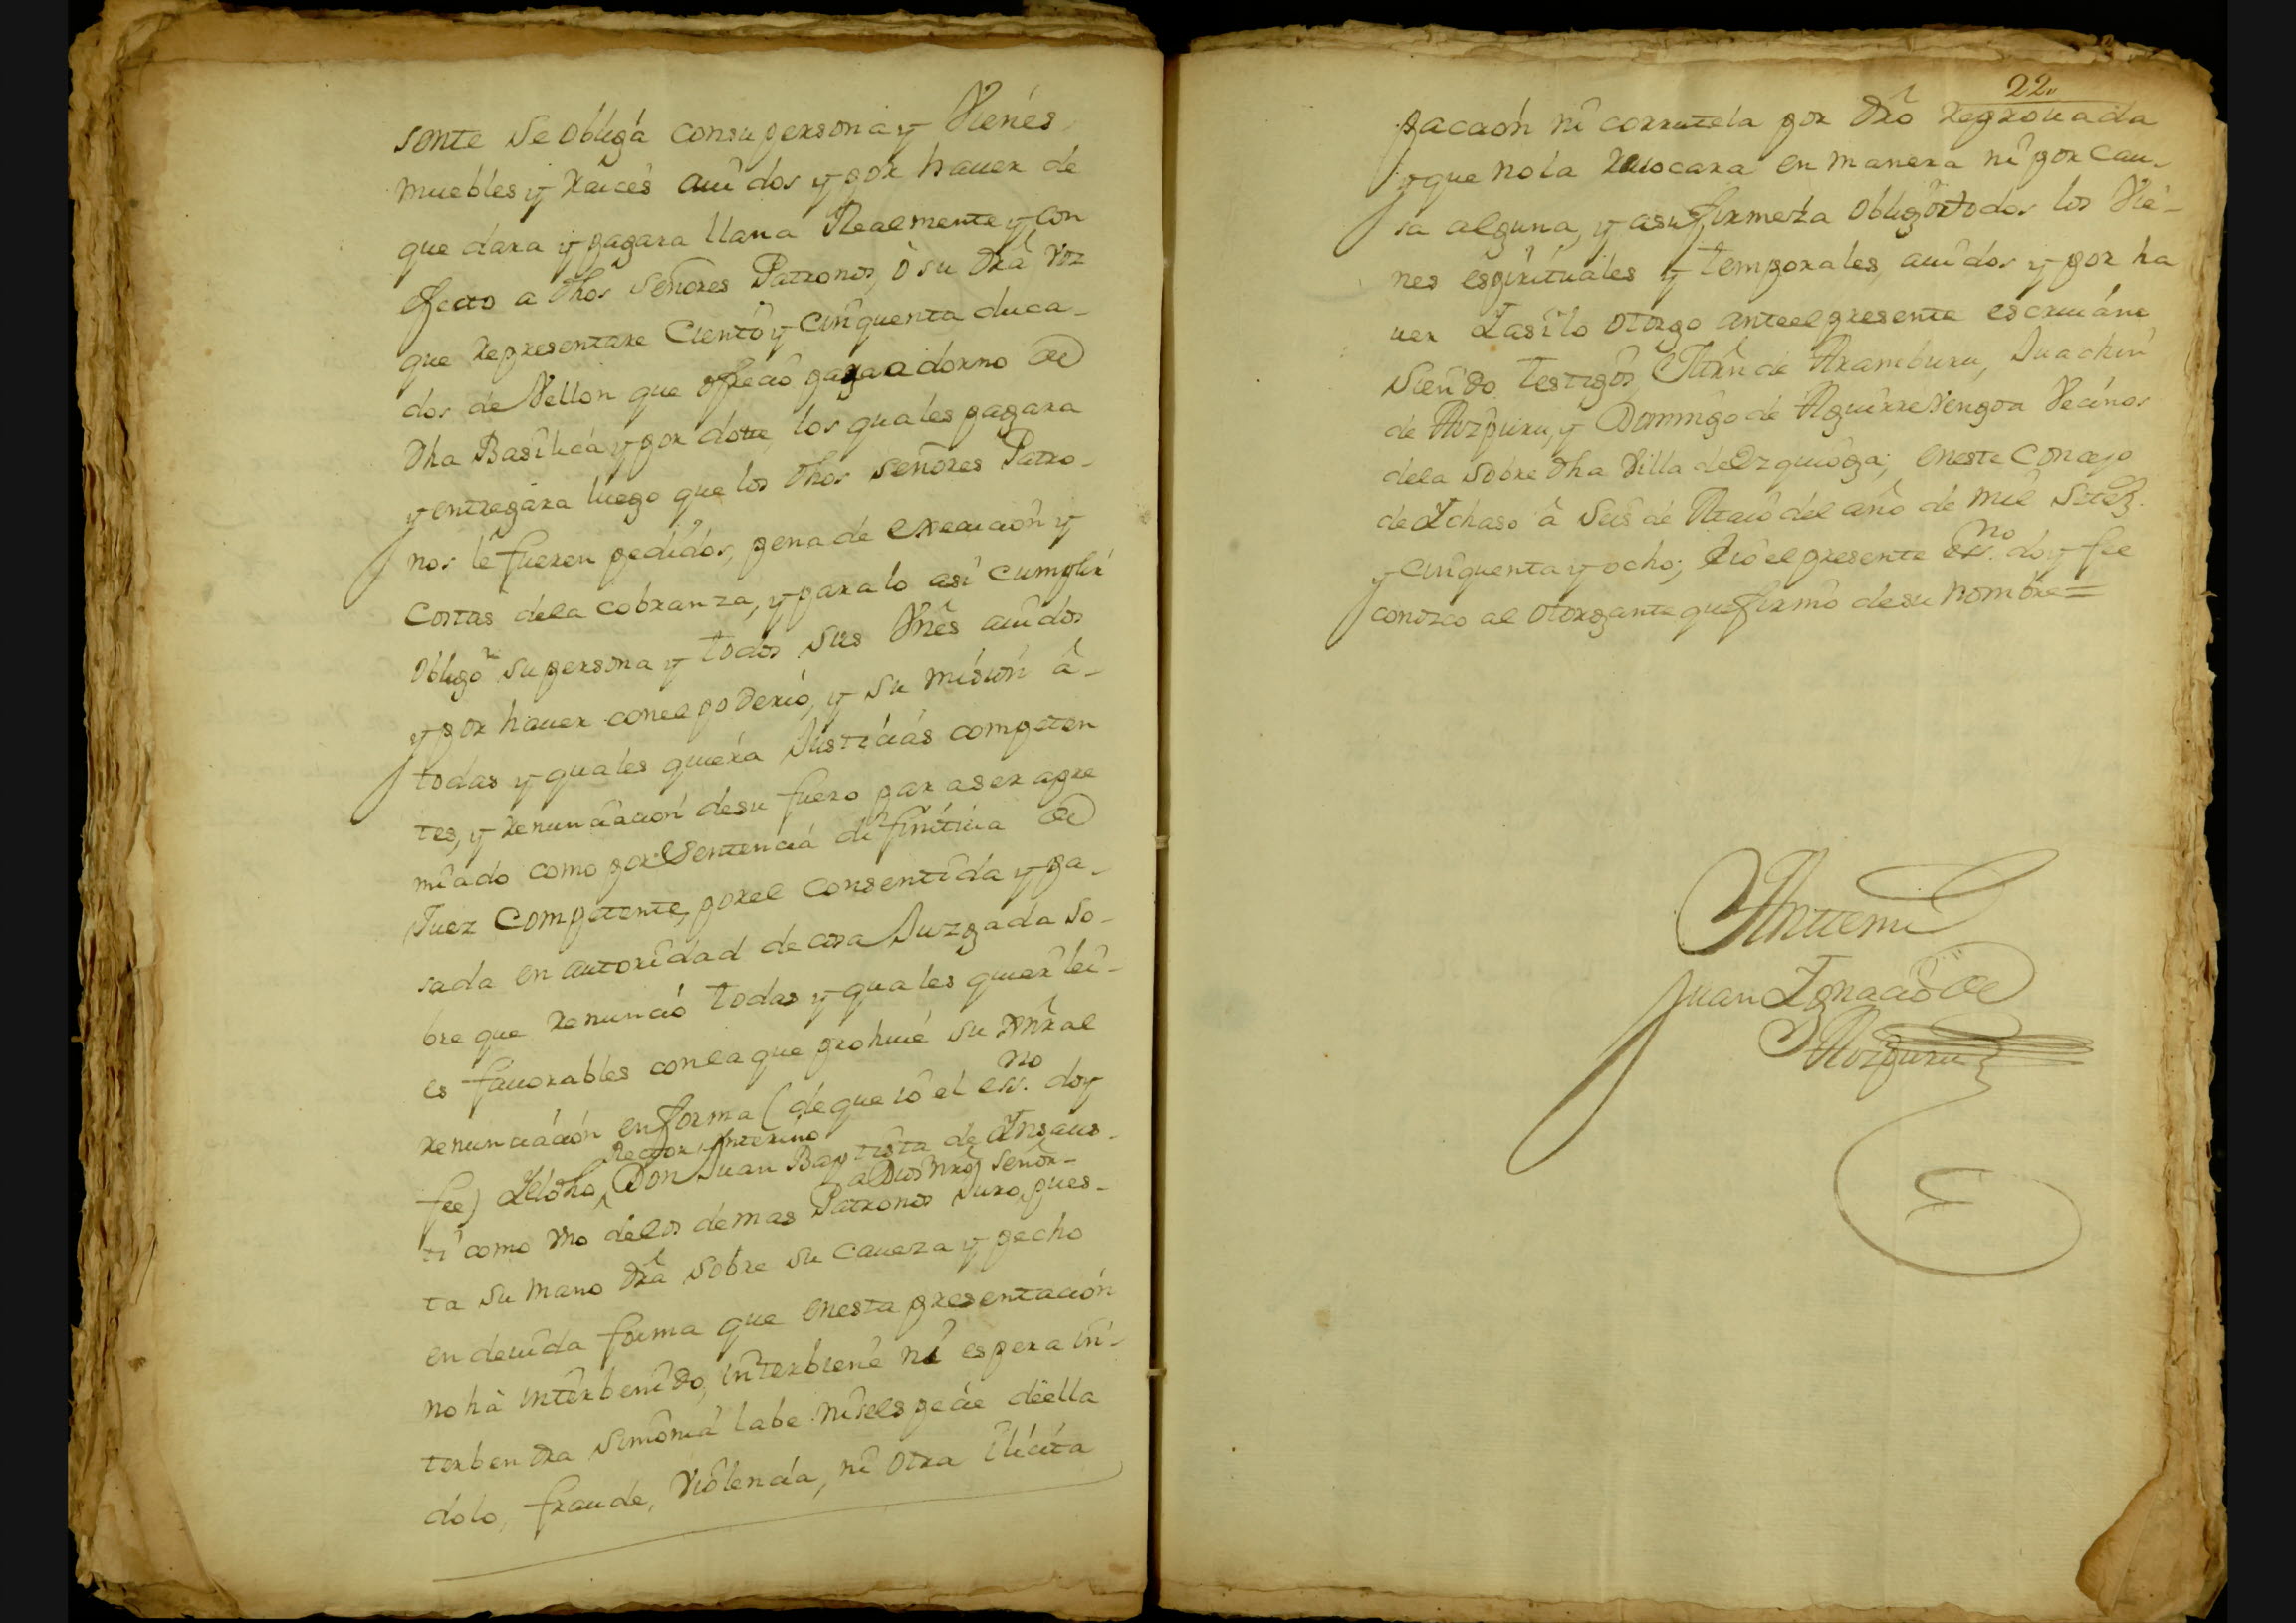 sente se obliga consu persona y Vienés
muebles y Raices auidos y por hauer de
que dara y pagara llana Realmente y con
efecto a dhos señores Patronos, ò su dra voz
que Representare Ciento y cinquenta duca-
dos de Vellon que ofrecio para adorno de
dha Basilica y por dote, los quales pagara
y entregara luego que los dhos señores Patro-
nos le fueren pedidos, pena de execucion y
costas dela cobranza, y para lo asi cumplir
obligò su persona y todos sus Vnês auidos
y por hauer conel poderio, y su mision â-
todas y quales quiera Justicias competen
tes, y Renunciacion desu fuero para ser apre
miado como por sentencia difinitiua de
Juez Competente, porel consentida y pa-
sada en autoridad de cosa Juzgada so-
bre que Renunció todas y quales quier lei-
es fauorables conla que prohiue su gnral
Renunciación en forma (de que io el ess.no doy
fee) I el dho Rector Interino Don Juan Baptista de Insaus-
ti como vno delos demas Patronos Juro a Dios nrô señor- pues-
ta su mano dra sobre su caueza y pecho
en deuida forma que enesta presentación
no hà interbenido, interbiene ni espera in-
terbendra simonia labe ni especie dëella
dolo, fraude, violencia, ni otra ilicita
22
pacaón ni corrutela por dro Reprouada
y que nola Reuocara en manera ni por cau-
sa alguna, y asu firmeza obligò todos los Vie-
nes espirituales y temporales, auidos y por ha
uer I asilo otorgo ante el presente escriuano
siendo testigos, Mrn de Aramburu, Juachin
de Aozpuru, y Domingo de Aguirresengoa Vecinos
dela sobre dha Villa de Ezquioga; eneste Concejo
de Ichaso à seis de Maio del año de mil setez.
y cinquenta y ocho; E io el presente ess.no doy fee
conozco al otorgante que firmò desu nombre=
Antemi
Juan Ignacio de
Aozpuru